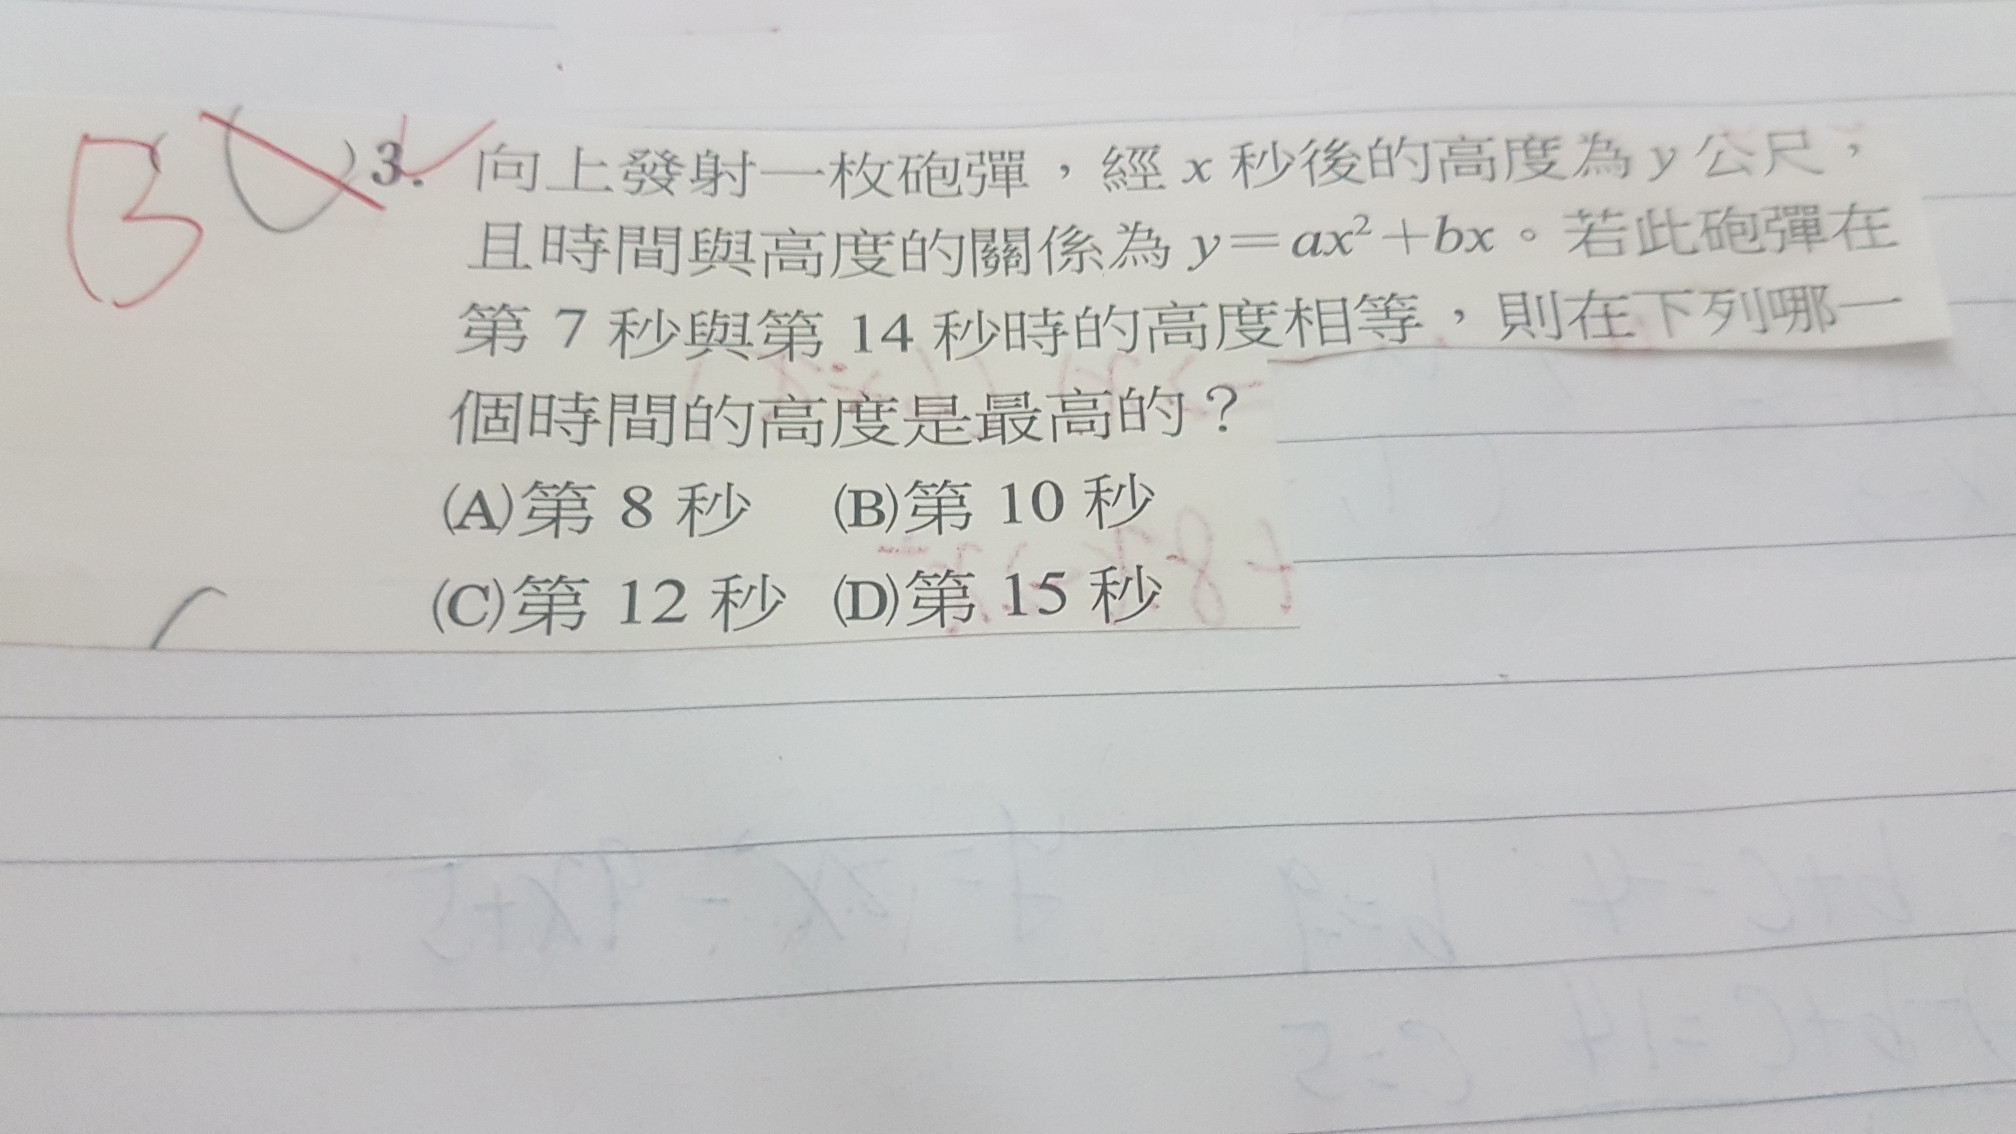 B ( )3. 向上發射一枚砲彈，經 x 秒後的高度為 y 公尺，
且時間與高度的關係為 y＝ax²＋bx。若此砲彈在
第 7 秒與第 14 秒時的高度相等，則在下列哪一
個時間的高度是最高的？
(A)第 8 秒 (B)第 10 秒
(C)第 12 秒 (D)第 15 秒